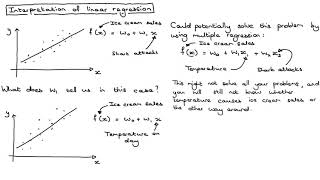 Interpretation of linear regression
y
Ice cream sales
f(x) = w₀ + w₁ x
Shark attacks
x
What does w₁ tell us in this case?
y
Ice cream sales
f(x) = w₀ + w₁ x
Temperature on
day
x
Could potentially solve this problem by
using multiple regression:
Ice cream sales
f(x) = w₀ + w₁ x₁ + w₂ x₂
Temperature
Shark attacks
This might not solve all your problems, and
you will still not know whether
temperature causes ice cream sales or
the other way around.